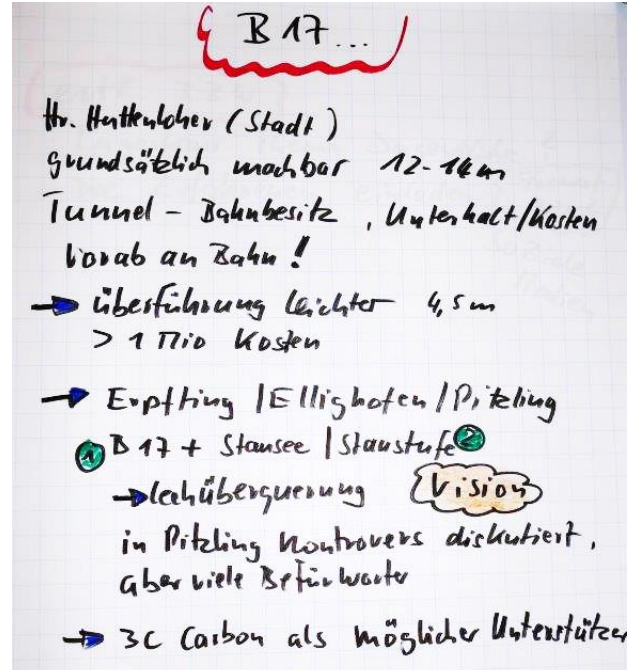 B 17...
Hr. Huttenloher (Stadt)
grundsätzlich machbar 12-14m
Tunnel - Bahnbesitz, Unterhalt/Kosten
vorab an Bahn!
→ überführung leichter 4,5m
> 1 Mio Kosten
→ Erpfting / Ellighofen / Pitzling
① B 17 + Stausee / Staustufe ②
→ Lechüberquerung Vision
in Pitzling kontrovers diskutiert,
aber viele Befürworter
→ 3C Carbon als möglicher Unterstützer